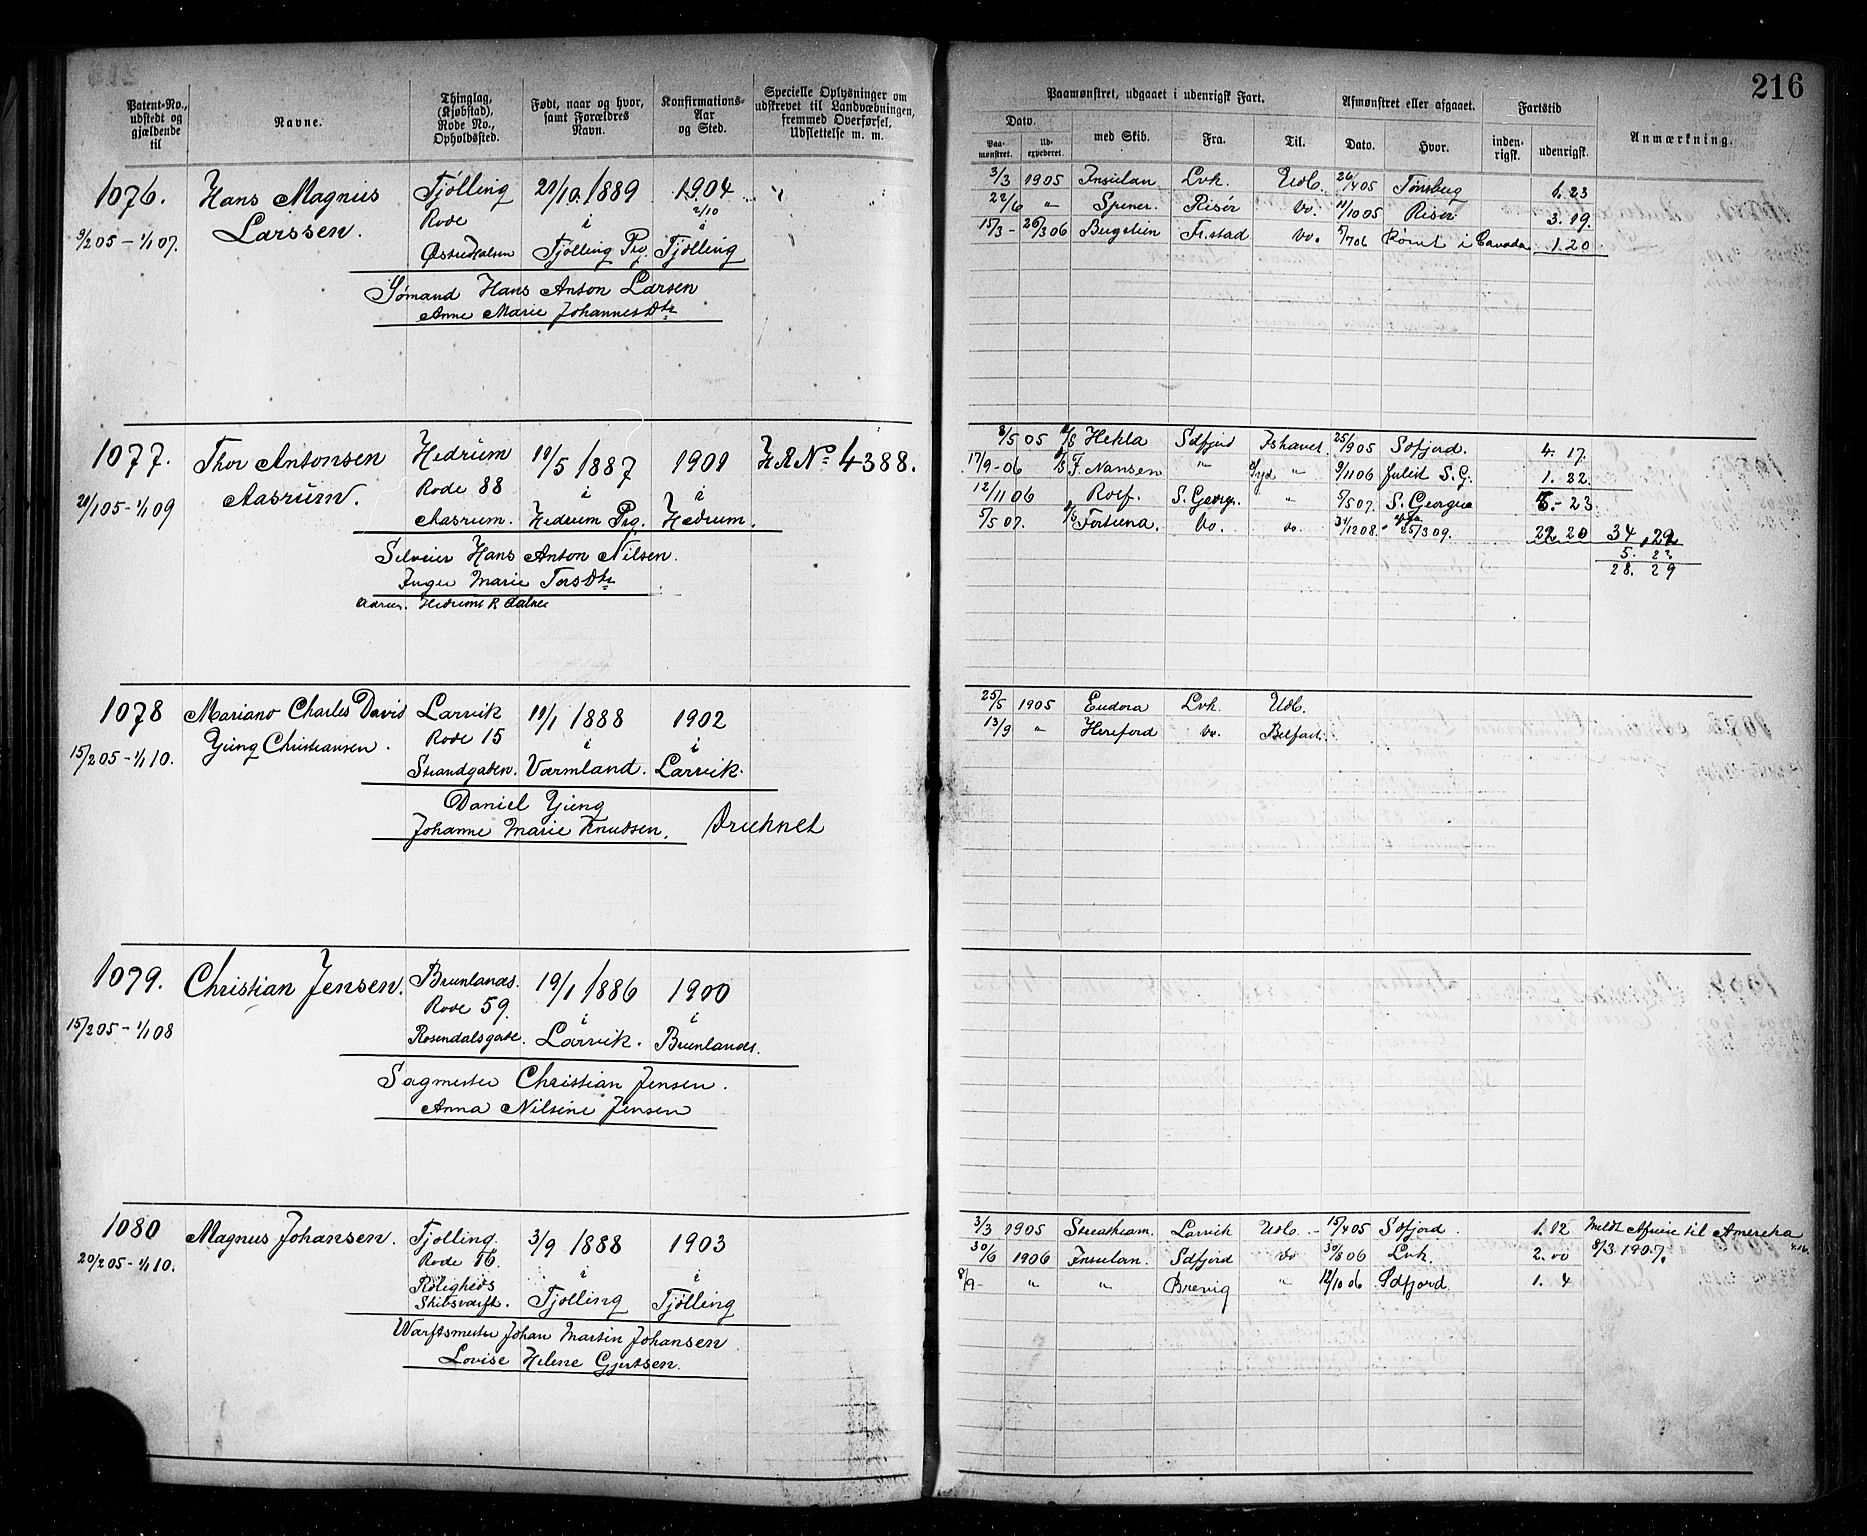 216
Patent-No., udstedt og gjældende til
Navne.
Thinglag, (Kjøbstad), Rode No., Opholdssted.
Født, naar og hvor, samt Forældres Navn.
Konfirmations-Aar og Sted.
Specielle Oplysninger om udskrevet til Landvæbningen, fremmed Overførsel, Udslettelse m. m.
Paamønstret, udgaaet i udenrigsk Fart.
Afmønstret eller afgaaet.
Fartstid
Anmærkning.
Dato.
Paa-mønstret.
Ud-expederet.
med Skib.
Fra.
Til.
Dato.
Hvor.
inden-rigsk.
udenrigsk.
1076. Hans Magnus Tjølling 21/10. 1889 1904
Larssen. Rode i 2/10 i
9/2 05 - 1/1 07. Østre Halsen Tjølling Prg. Tjølling
Sømand Hans Anton Larsen
Anne Marie Johannesdtr
3/3 1905 Insulan Lvk. Udl. 26/4 05 Tønsberg 1. 23
22/6 " Spener. Risør do. 11/10 05 Risør 3. 19.
15/3 - 26/3 06 Do. 5/7 06 Rømt i Canada 1. 20
1077. Thor Antonsen Hedrum 11/5 1887 1901 H R No 4388.
Aasrum. Rode 88 i i
21/1 05 - 1/1 09 Aasrum. Hedrum Prg. Hedrum.
Hans Anton Nilsen.
Inger Marie Torsdtr
8/5 05 Hekla Sdfjord Ishavet 25/9 05 Sdfjord. 4. 17.
17/9 - 06 F. Nansen " Syd " 9/11 06 S. G. 1. 22.
12/11 06 Rolf. S. Georg. " 5/5 07. S. Georgia 5 - 23.
5/5 07. Fortuna. do. do. 31/12 08. 25/3 09. 22 20 34, 22
5. 23
28. 29
1078 Mariano Charles David Larvik 11/1 1888 1902
Yüng Christiansen. Rode 15 i i
15/2 05 - 1/1 10. Strandgaden. Varmland. Larvik.
Daniel Yüng
Johanne Marie Knudsen. Druknet
25/5 1905 Eudora Lvk. Udl.
13/9 " Hereford do. Belfast.
1079. Christian Jensen. Brunlanæs. 19/1 1886 1900
Rode 59. i i
15/2 05 - 1/1 08 Rosendalsgade. Larvik. Brunlanæs.
Sagmester Christian Jensen.
Anna Nilsine Jensen
1080 Magnus Johansen. Tjølling. 3/9 1888 1903
20/2 05 - 1/1 10. Rode 16. i i
Roligheds Skibsværft. Tjølling Tjølling
Værftsmester Johan Martin Johansen
Lovise Helene Gjertsen.
3/3 1905 Streatham. Larvik Udl. 15/4 05 Sdfjord. 1. 12 Meldt Afreise til Amerika
30/6 1906 Insulan. Sdfjord do 30/8 06 Lvk. 2. 00 8/3 1907.
8/9 - " " Brevig " 12/10 06 Sdfjord. 1. 4